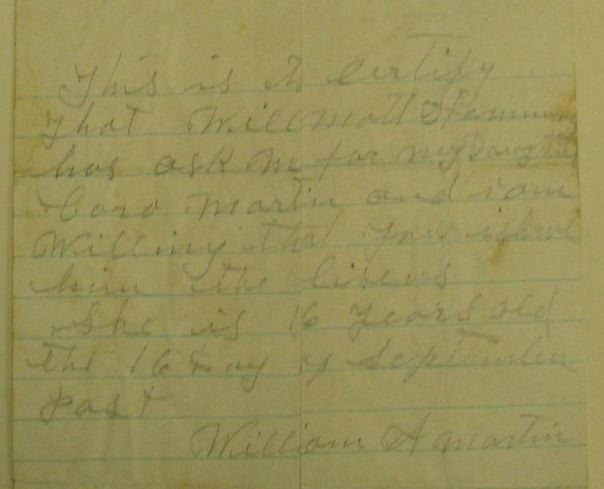 This is to Certify
that Willmott Hammon
has ask me for my Daughter
Cora Martin and i am
Willing that you ishue
him the lisens
She is 16 years old
the 16 Day of September
past
William A Martin